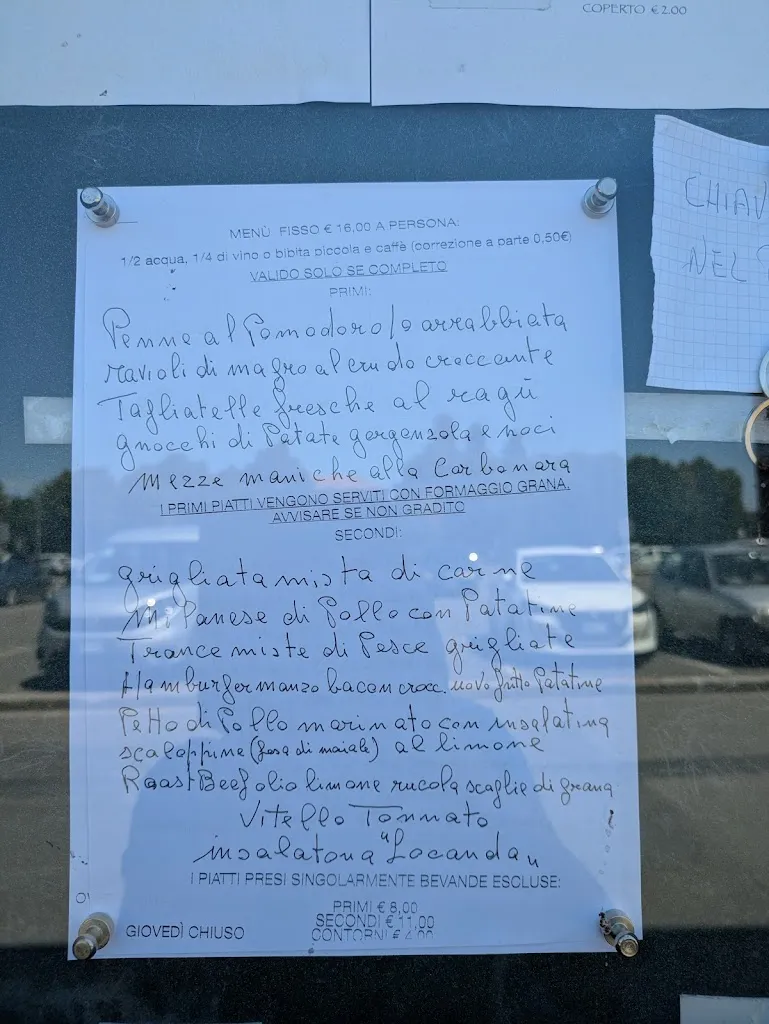 COPERTO € 2.00
CHIAV
NEL
MENÙ FISSO € 16,00 A PERSONA:
1/2 acqua, 1/4 di vino o bibita piccola e caffè (correzione a parte 0,50€)
VALIDO SOLO SE COMPLETO
PRIMI:
Penne al Pomodoro/o arrabbiata
ravioli di magro al crudo croccante
Tagliatelle fresche al ragù
gnocchi di Patate gorgonzola e noci
mezze maniche alla Carbonara
I PRIMI PIATTI VENGONO SERVITI CON FORMAGGIO GRANA.
AVVISARE SE NON GRADITO
SECONDI:
grigliata mista di carne
Milanese di Pollo con Patatine
Trance miste di Pesce grigliate
Hamburger manzo bacon crocc. uovo fritto Patatine
Petto di Pollo marinato con insalatina
scaloppine (fesa di maiale) al limone
Roast Beef olio limone rucola scaglie di grana
Vitello Tonnato
insalatona "Locanda"
I PIATTI PRESI SINGOLARMENTE BEVANDE ESCLUSE:
PRIMI € 8,00
SECONDI € 11,00
CONTORNI € 4,00
GIOVEDÌ CHIUSO